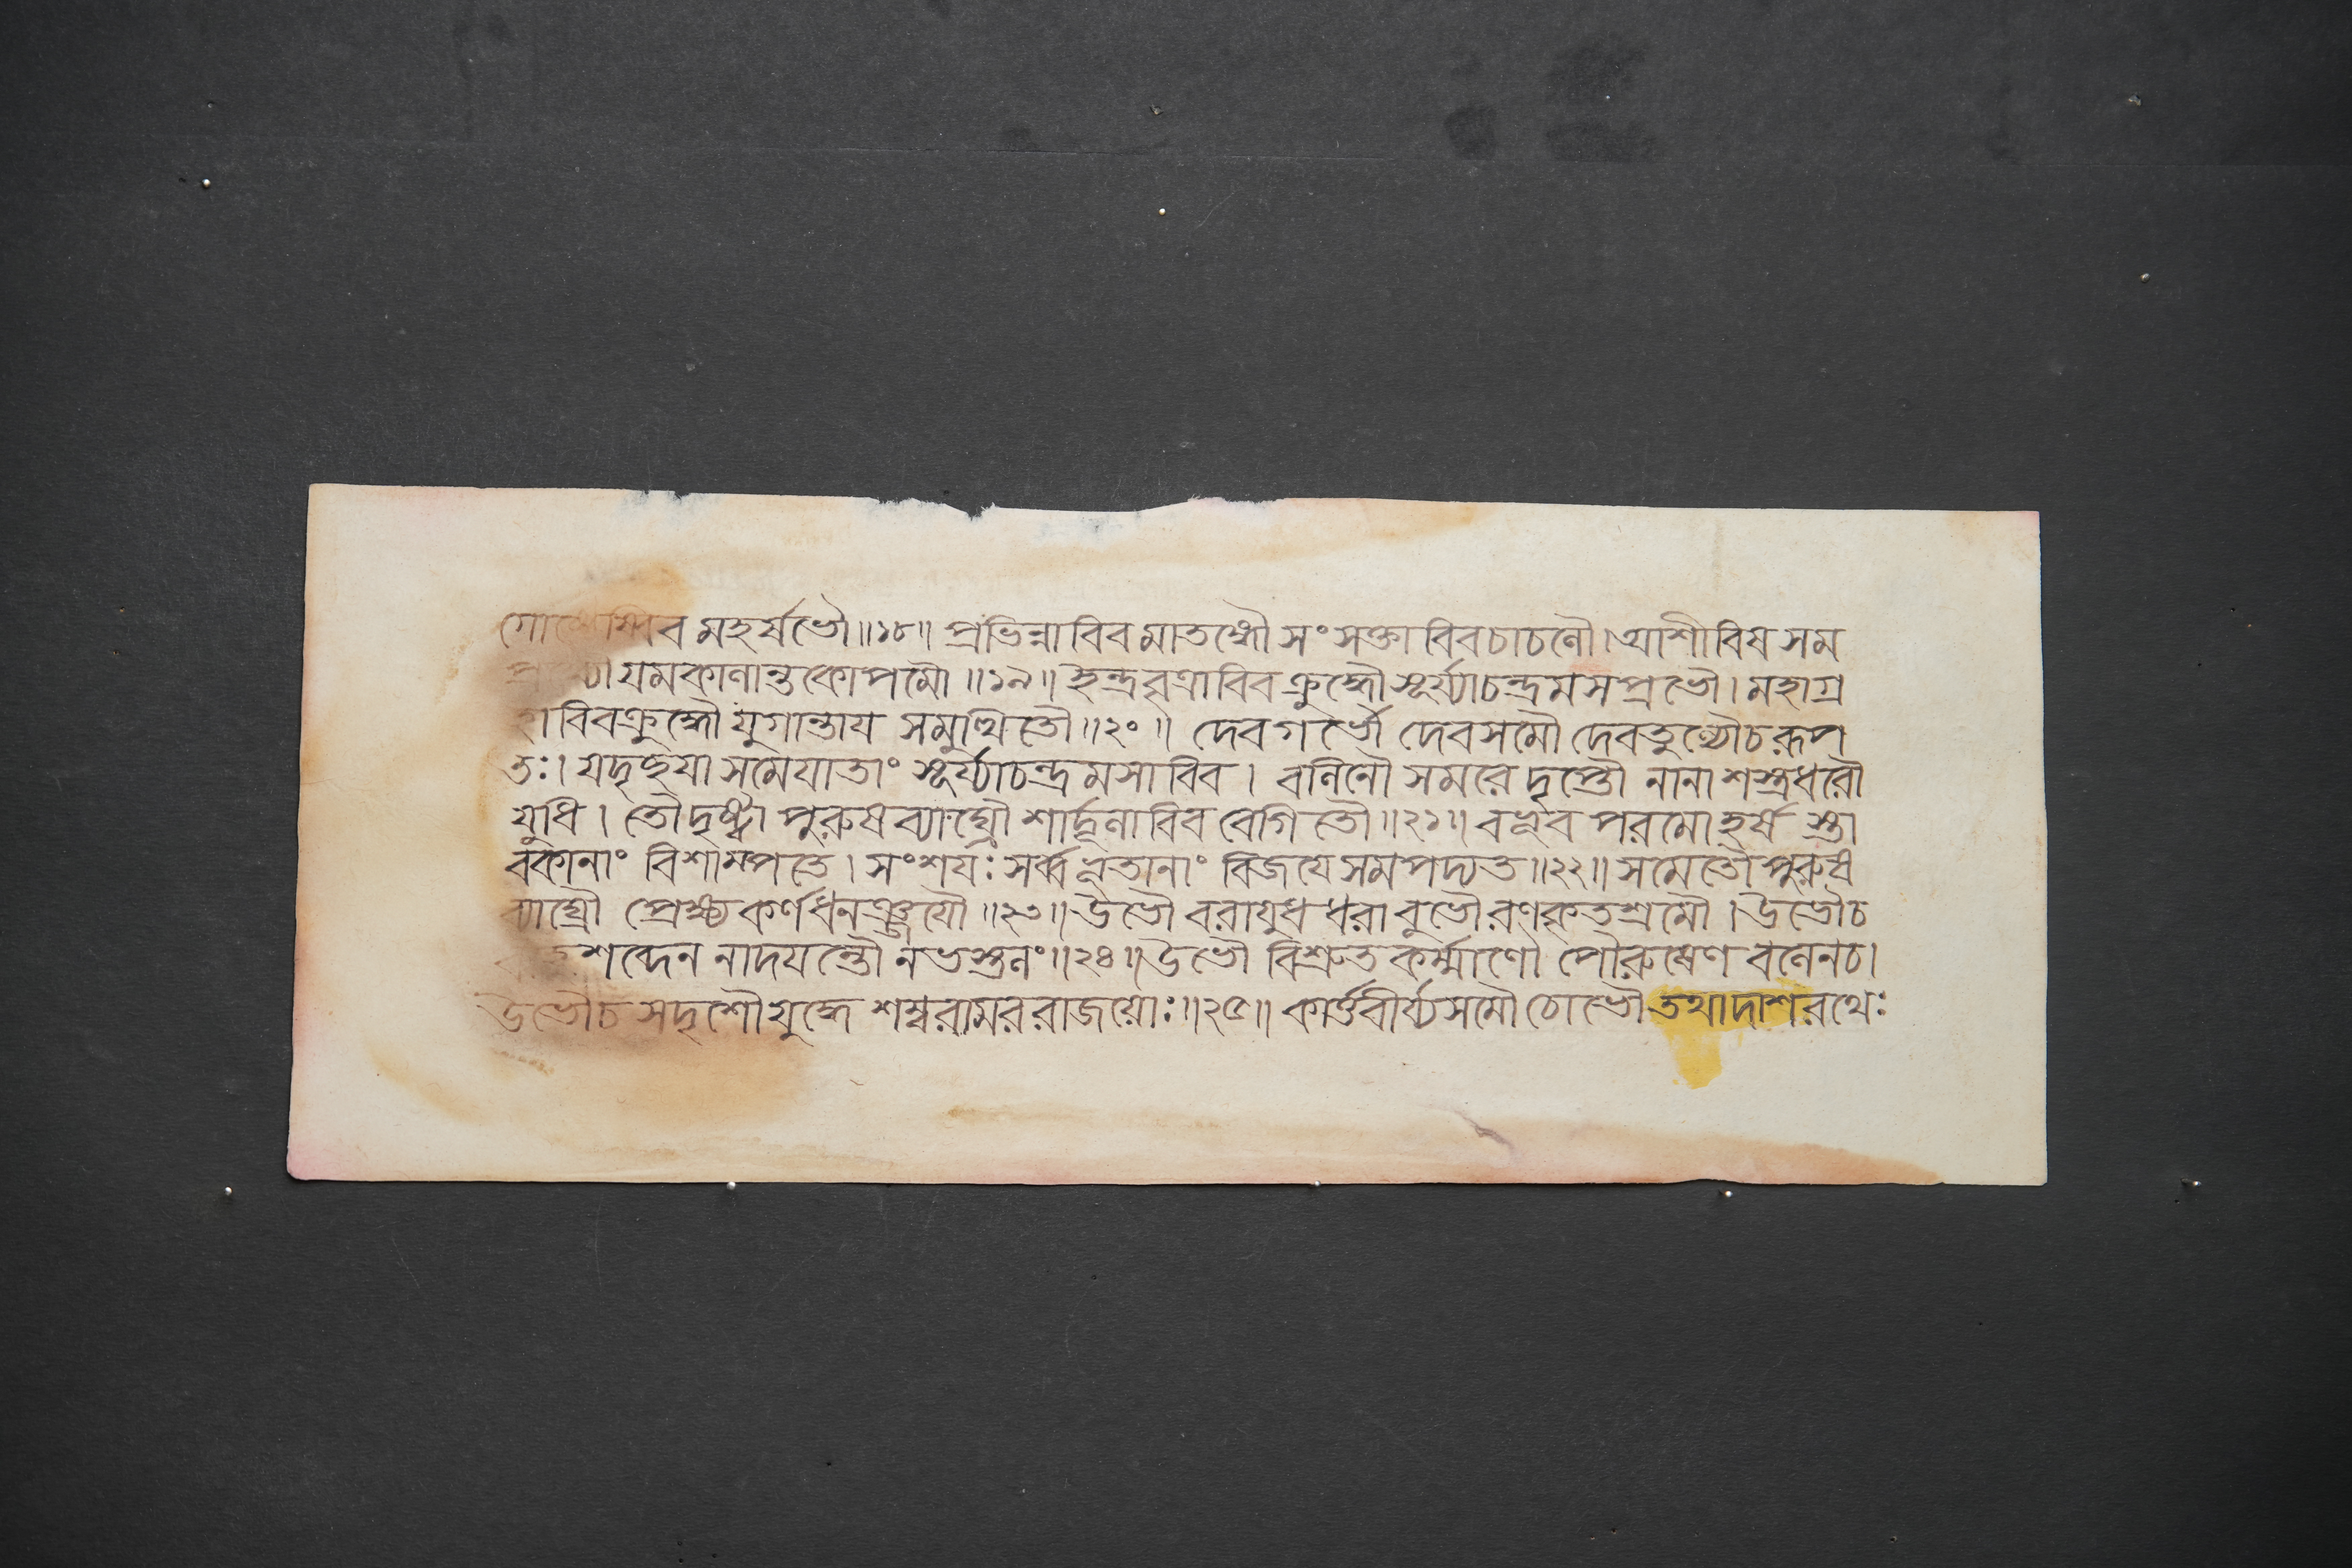 গোষ্ঠেষ্বিব মহর্ষভৌ॥১৮॥ প্রভিন্নাবিব মাতঙ্গৌ সংসক্তাবিবচাচলৌ।আশীবিষ সম
যমকালান্তকোপমৌ॥১৯॥ ইন্দ্রবৃত্রাবিব ক্রুদ্ধৌ সূর্য্যাচন্দ্রমসপ্রভৌ। মহাগ্র
হাবিবক্রুদ্ধৌ যুগান্তায সমুত্থিতৌ॥২০॥ দেবগর্ভৌ দেবসমৌ দেবতুল্যৌচরূপ
তঃ। যদৃচ্ছযা সমেযাতাং সূর্য্যাচন্দ্রমসাবিব। বলিনৌ সমরে দৃপ্তৌ নানাশস্ত্রধরৌ
যুধি। তৌদৃষ্ট্বা পুরুষব্যাঘ্রৌ শার্দ্দূলাবিব বেগিতৌ॥২১॥ বভূব পরমোহর্ষ স্তা
বকানাং বিশাম্পতে। সংশযঃ সর্ব্বভূতানাং বিজযে সমপদ্যত॥২২॥ সমেতৌ পুরুষ
ব্যাঘ্রৌ প্রেক্ষ্য কর্ণধনঞ্জযৌ॥২৩॥ উভৌ বরাযুধধরাবুভৌ রণকৃতশ্রমৌ। উভৌচ
শব্দেন নাদযন্তৌ নভস্তলং॥২৪॥ উভৌ বিশ্রুতকর্ম্মাণৌ পৌরুষেণ বলেনচ।
উভৌচ সদৃশৌ যুদ্ধে শম্বরামররাজয়োঃ॥২৫॥ কার্ত্তবীর্য্যসমৌ চোভৌ তথাদাশরথেঃ